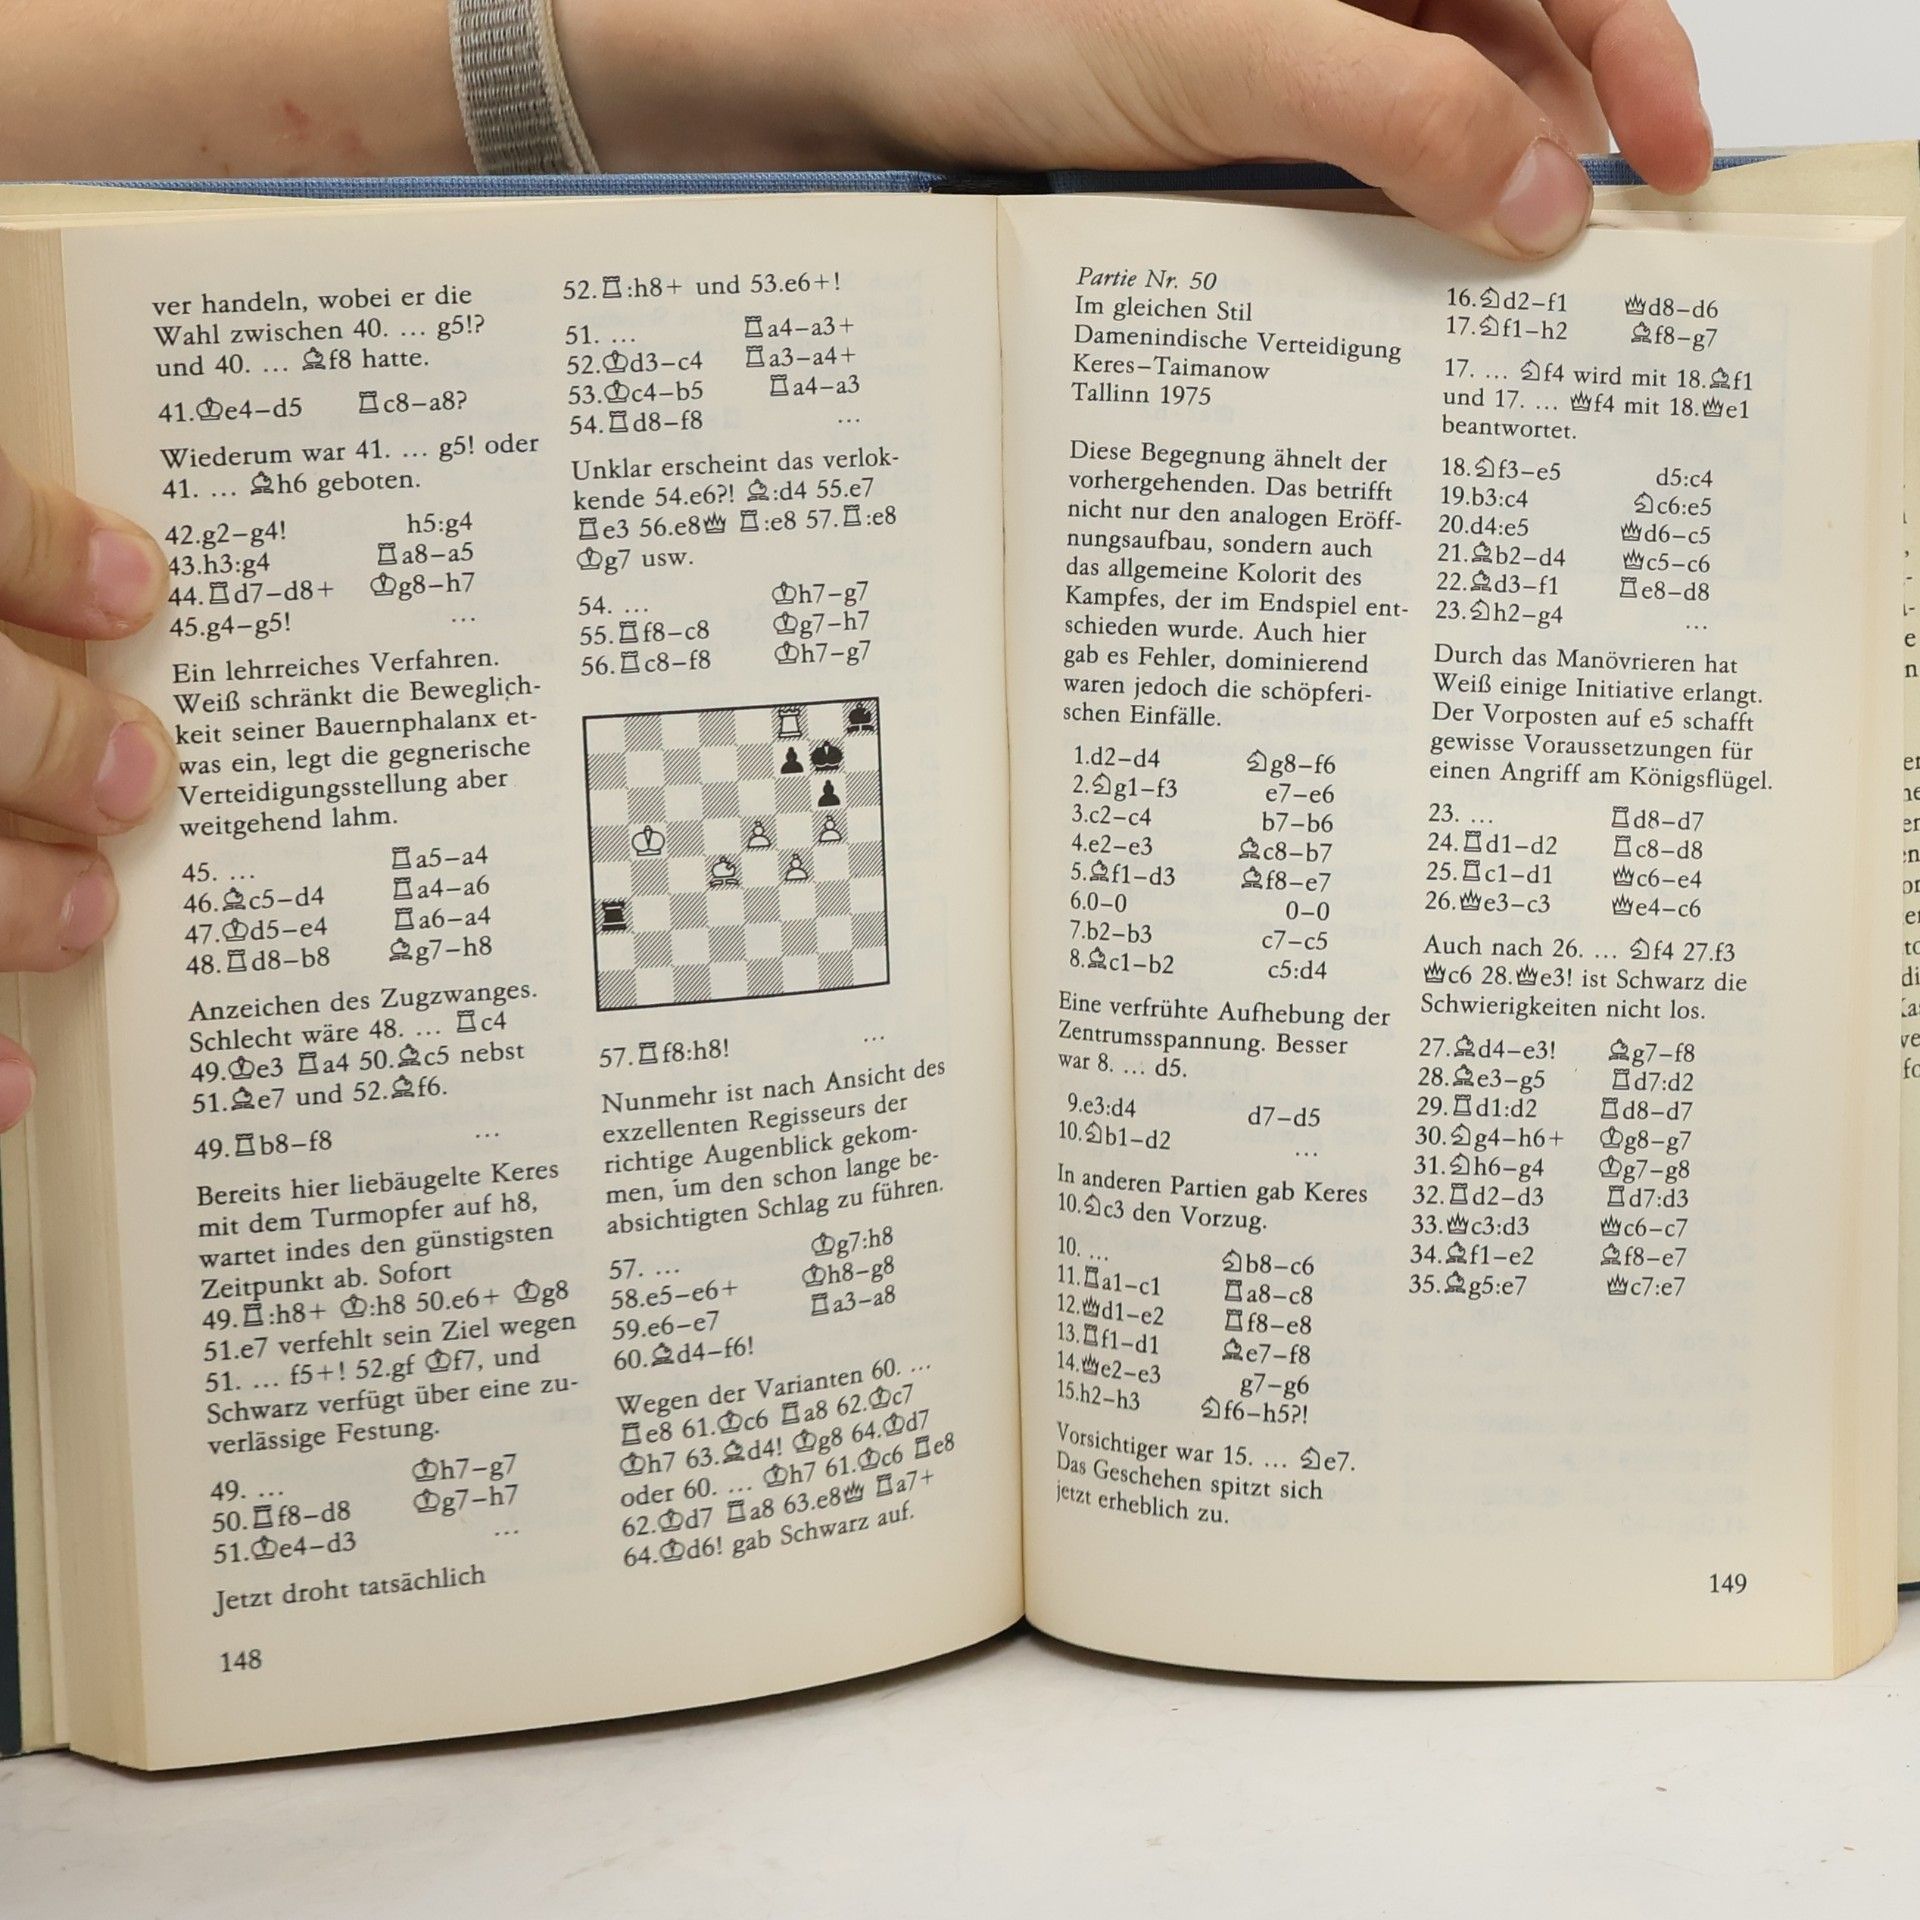 ver handeln, wobei er die
Wahl zwischen 40. ... g5!?
und 40. ... ♗f8 hatte.
41.♔e4–d5 ♖c8–a8?
Wiederum war 41. ... g5! oder
41. ... ♗h6 geboten.
42.g2–g4! h5:g4
43.h3:g4 ♖a8–a5
44.♖d7–d8+ ♔g8–h7
45.g4–g5! ...
Ein lehrreiches Verfahren.
Weiß schränkt die Beweglich-
keit seiner Bauernphalanx et-
was ein, legt die gegnerische
Verteidigungsstellung aber
weitgehend lahm.
45. ... ♖a5–a4
46.♗c5–d4 ♖a4–a6
47.♔d5–e4 ♖a6–a4
48.♖d8–b8 ♗g7–h8
Anzeichen des Zugzwanges.
Schlecht wäre 48. ... ♖c4
49.♔e3 ♖a4 50.♗c5 nebst
51.♗e7 und 52.♗f6.
49.♖b8–f8 ...
Bereits hier liebäugelte Keres
mit dem Turmopfer auf h8,
wartet indes den günstigsten
Zeitpunkt ab. Sofort
49.♖:h8+ ♔:h8 50.e6+ ♔g8
51.e7 verfehlt sein Ziel wegen
51. ... f5+! 52.gf ♔f7, und
Schwarz verfügt über eine zu-
verlässige Festung.
49. ... ♔h7–g7
50.♖f8–d8 ♔g7–h7
51.♔e4–d3 ...
Jetzt droht tatsächlich
148
52.♖:h8+ und 53.e6+!
51. ... ♖a4–a3+
52.♔d3–c4 ♖a3–a4+
53.♔c4–b5 ♖a4–a3
54.♖d8–f8 ...
Unklar erscheint das verlok-
kende 54.e6?! ♗:d4 55.e7
♖e3 56.e8♕ ♖:e8 57.♖:e8
♔g7 usw.
54. ... ♔h7–g7
55.♖f8–c8 ♔g7–h7
56.♖c8–f8 ♔h7–g7
57.♖f8:h8! ...
Nunmehr ist nach Ansicht des
exzellenten Regisseurs der
richtige Augenblick gekom-
men, um den schon lange be-
absichtigten Schlag zu führen.
57. ... ♔g7:h8
58.e5–e6+ ♔h8–g8
59.e6–e7 ♖a3–a8
60.♗d4–f6!
Wegen der Varianten 60. ...
♖e8 61.♔c6 ♖a8 62.♔c7
♔h7 63.♗d4! ♔g8 64.♔d7
oder 60. ... ♔h7 61.♔c6 ♖e8
62.♔d7 ♖a8 63.e8♕ ♖a7+
64.♔d6! gab Schwarz auf.
Partie Nr. 50
Im gleichen Stil
Damenindische Verteidigung
Keres–Taimanow
Tallinn 1975
Diese Begegnung ähnelt der
vorhergehenden. Das betrifft
nicht nur den analogen Eröff-
nungsaufbau, sondern auch
das allgemeine Kolorit des
Kampfes, der im Endspiel ent-
schieden wurde. Auch hier
gab es Fehler, dominierend
waren jedoch die schöpferi-
schen Einfälle.
1.d2–d4 ♘g8–f6
2.♘g1–f3 e7–e6
3.c2–c4 b7–b6
4.e2–e3 ♗c8–b7
5.♗f1–d3 ♗f8–e7
6.0–0 0–0
7.b2–b3 c7–c5
8.♗c1–b2 c5:d4
Eine verfrühte Aufhebung der
Zentrumsspannung. Besser
war 8. ... d5.
9.e3:d4 d7–d5
10.♘b1–d2 ...
In anderen Partien gab Keres
10.♘c3 den Vorzug.
10. ... ♘b8–c6
11.♖a1–c1 ♖a8–c8
12.♕d1–e2 ♖f8–e8
13.♖f1–d1 ♗e7–f8
14.♕e2–e3 g7–g6
15.h2–h3 ♘f6–h5?!
Vorsichtiger war 15. ... ♘e7.
Das Geschehen spitzt sich
jetzt erheblich zu.
16.♘d2–f1 ♕d8–d6
17.♘f1–h2 ♗f8–g7
17. ... ♘f4 wird mit 18.♗f1
und 17. ... ♕f4 mit 18.♕e1
beantwortet.
18.♘f3–e5 d5:c4
19.b3:c4 ♘c6:e5
20.d4:e5 ♕d6–c5
21.♗b2–d4 ♕c5–c6
22.♗d3–f1 ♖e8–d8
23.♘h2–g4 ...
Durch das Manövrieren hat
Weiß einige Initiative erlangt.
Der Vorposten auf e5 schafft
gewisse Voraussetzungen für
einen Angriff am Königsflügel.
23. ... ♖d8–d7
24.♖d1–d2 ♖c8–d8
25.♖c1–d1 ♕c6–e4
26.♕e3–c3 ♕e4–c6
Auch nach 26. ... ♘f4 27.f3
♕c6 28.♕e3! ist Schwarz die
Schwierigkeiten nicht los.
27.♗d4–e3! ♗g7–f8
28.♗e3–g5 ♖d7:d2
29.♖d1:d2 ♖d8–d7
30.♘g4–h6+ ♔g8–g7
31.♘h6–g4 ♔g7–g8
32.♖d2–d3 ♖d7:d3
33.♕c3:d3 ♕c6–c7
34.♗f1–e2 ♗f8–e7
35.♗g5:e7 ♕c7:e7
149